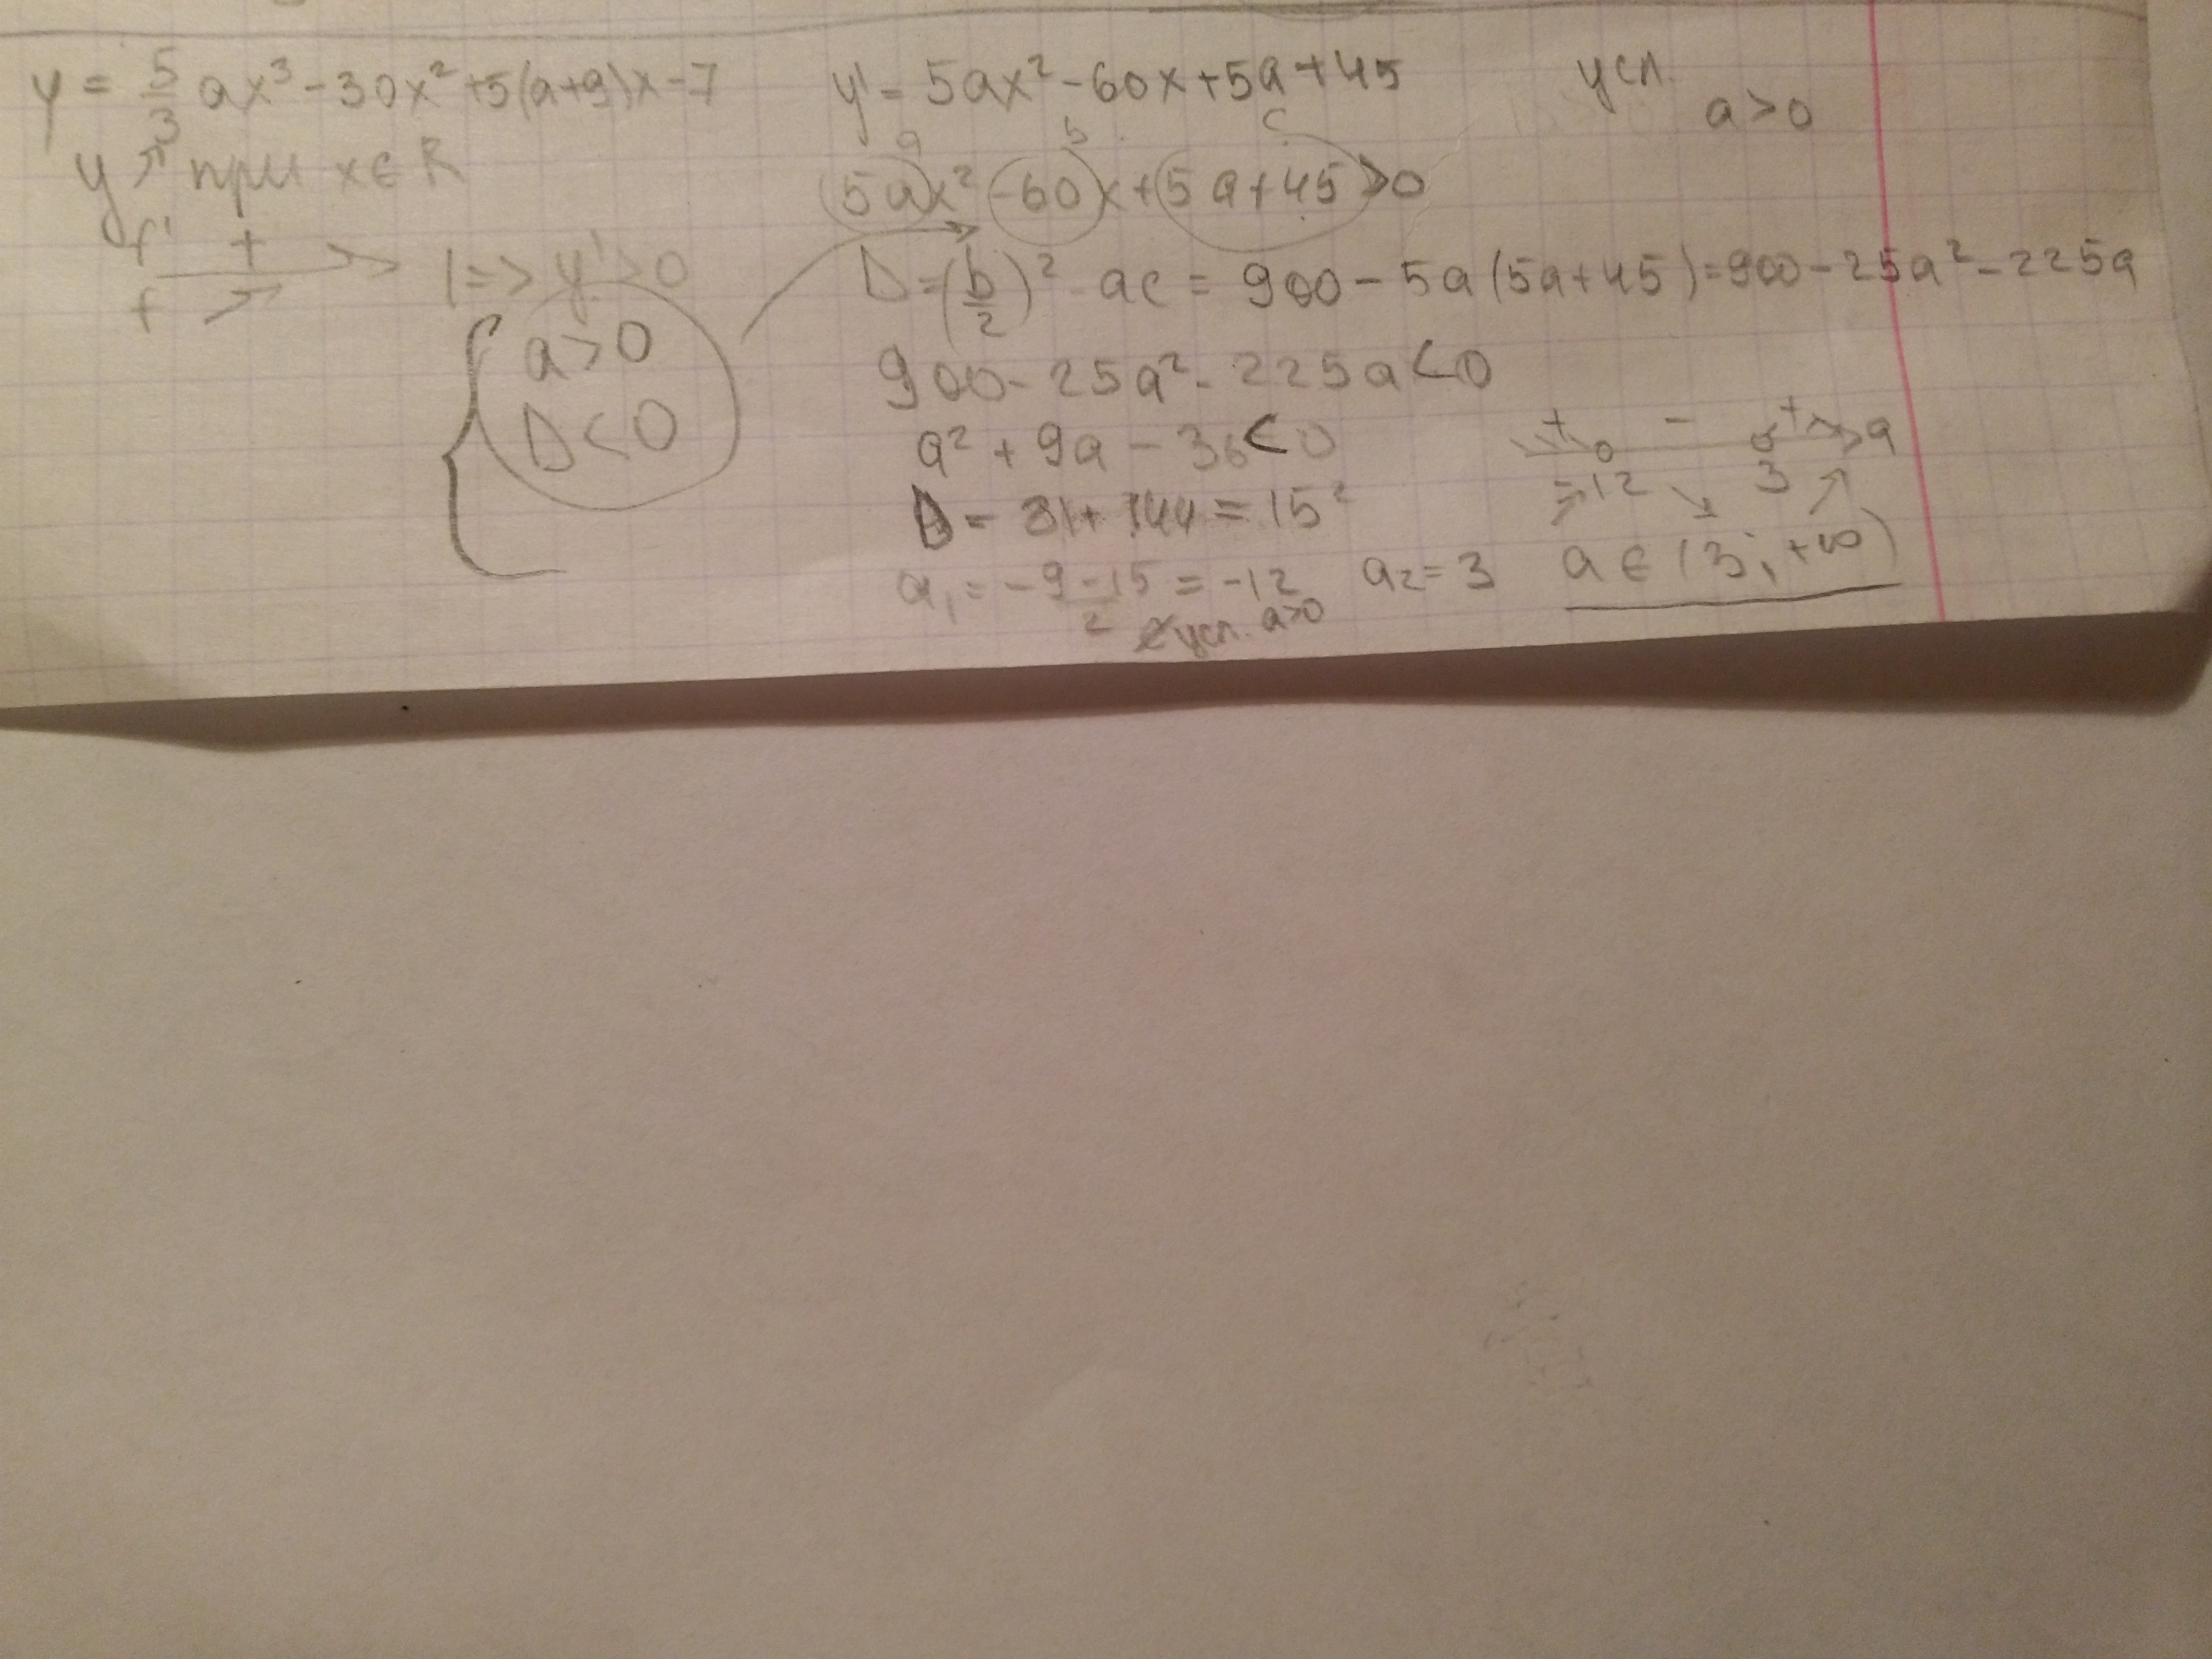 y = 5/3 ax³ - 30x² + 5(a+9)x - 7
y ↗ при x ∈ R
f' +
f ↗
|=> y' > 0
{ a > 0
D < 0
y' = 5ax² - 60x + 5a + 45
усл.
a > 0
a b c
5ax² - 60x + 5a + 45 > 0
D = (b/2)² - ac = 900 - 5a(5a+45) = 900 - 25a² - 225a
900 - 25a² - 225a < 0
a² + 9a - 36 < 0
D = 81 + 144 = 15²
a₁ = -9-15/2 = -12 a₂ = 3
усл. a>0
+ - + a
-12 3
a ∈ (3; +∞)